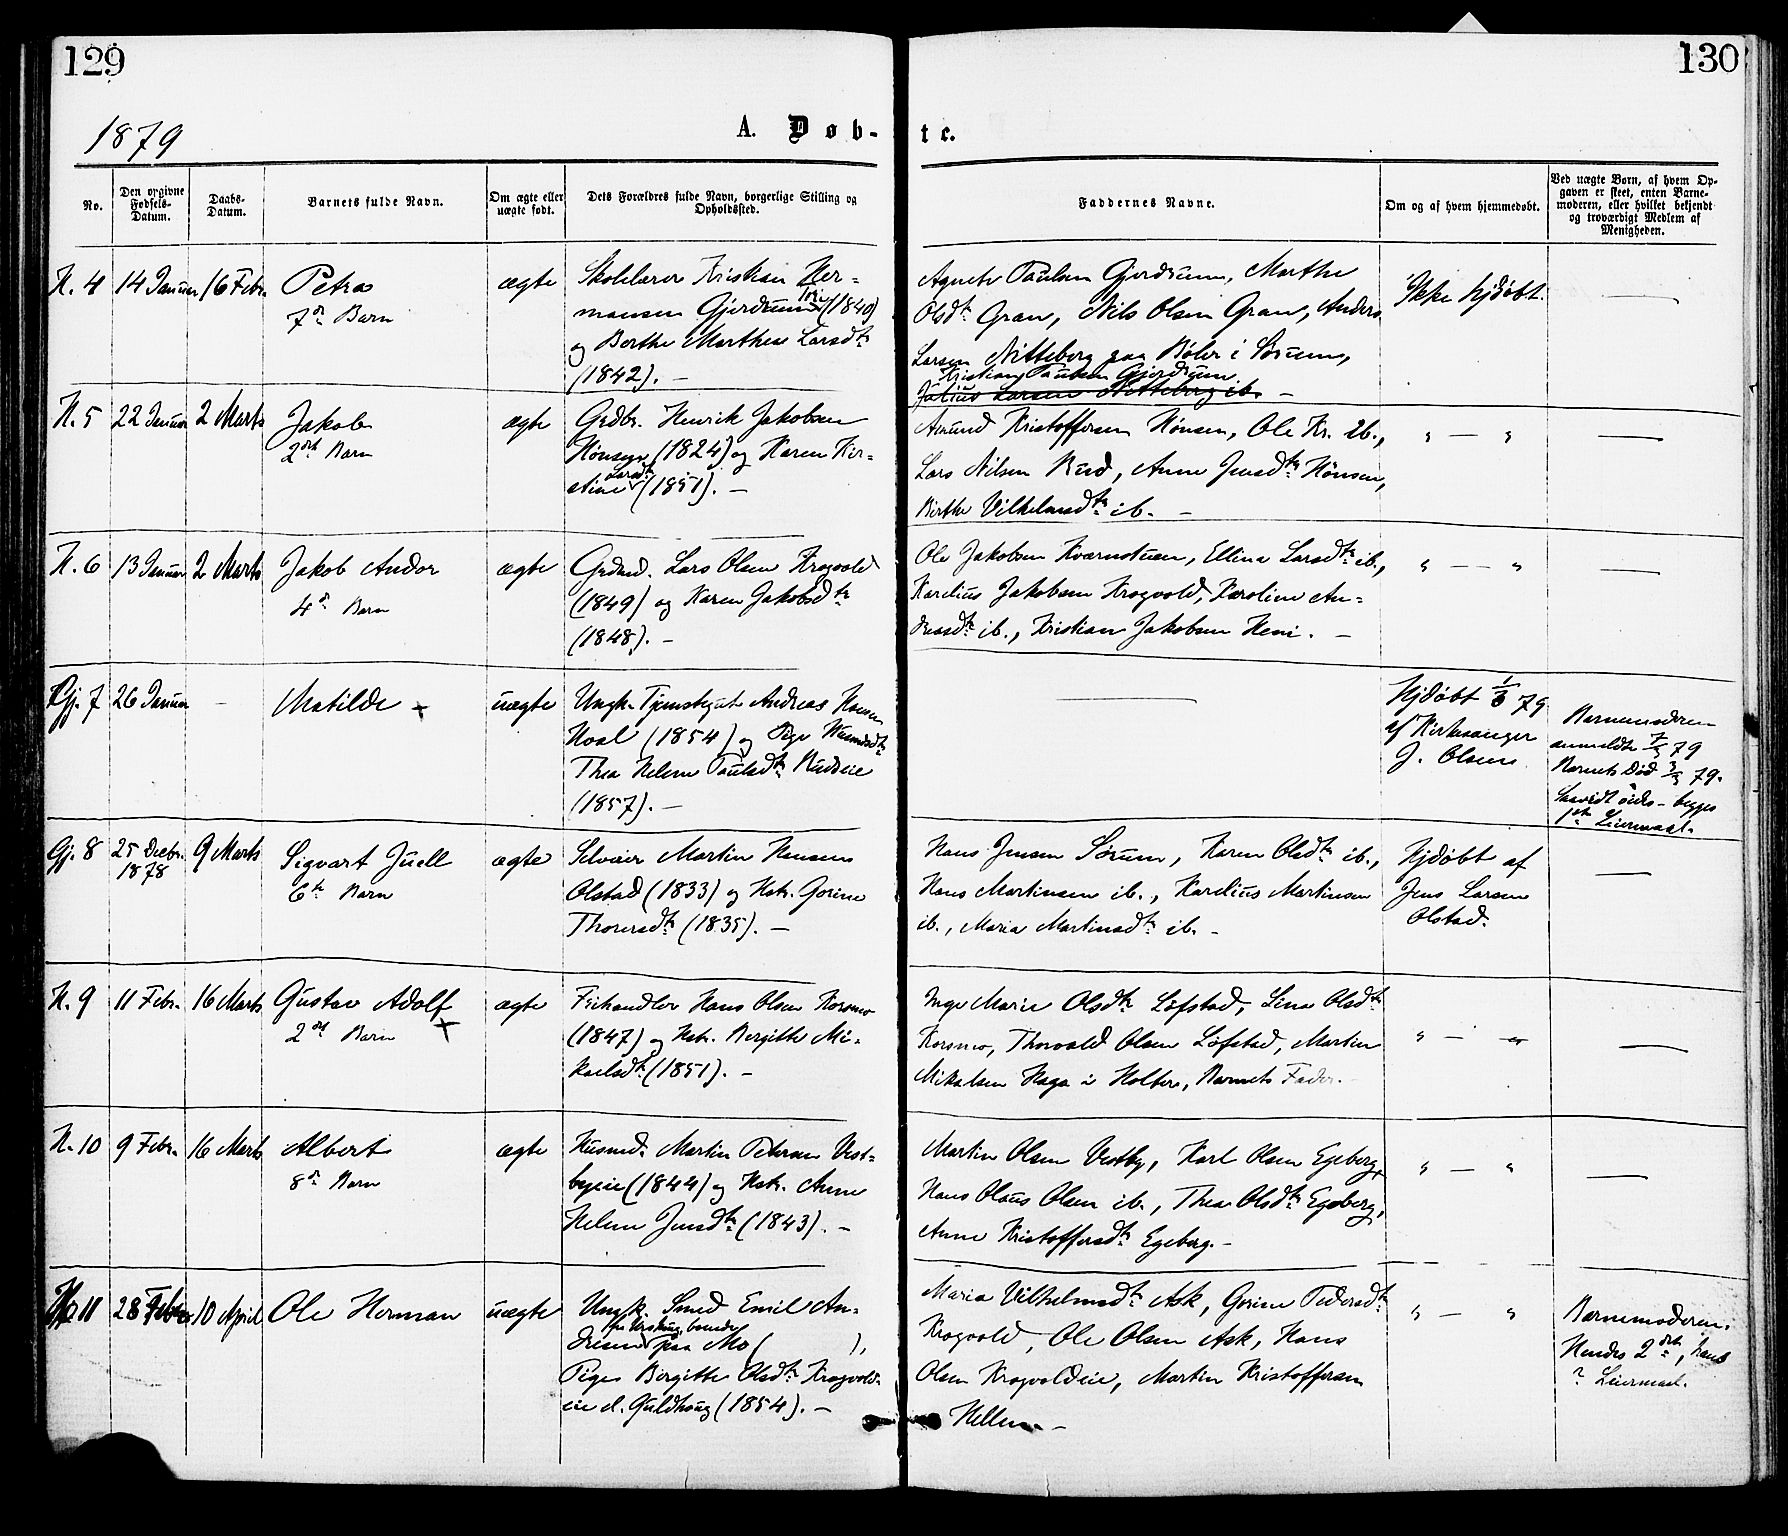 129
130
1879
A. Døb-
te.
No.
Den opgivne Fødsels-Datum.
Daabs-Datum.
Barnets fulde Navn.
Om ægte eller uægte født.
Dets Forældres fulde Navn, borgerlige Stilling og Opholdssted.
Faddernes Navne.
Om og af hvem hjemmedøbt.
Ved uægte Børn, af hvem Op-
gaven er skeet, enten Barne-
moderen, eller hvilket bekjendt
og troværdigt Medlem af
Menigheden.
N. 4
14 Januar
16 Febr.
Petra
7de Barn
ægte
Skolelærer Kristian Her-
mansen Gjerdrum (1840)
og Berthe Marthea Larsdtr
(1842). —
Agnethe Paulsen Gjerdrum, Marthe
Olsdtr Gran, Nils Olsen Gran, Anders
Larsen Nitteberg paa Bøler i Sørum,
Kristian Paulsen Gjerdrum
Julius Larsen Nitteberg ib. —
Ikke hjdøbt.
—
N. 5
22 Januar
2 Marts
Jakob
2det Barn
ægte
Grdbr. Henrik Jakobsen
Hønsen (1824) og Karen Kir-
Larsdtr
stine (1851). —
Amund Kristoffersen Hønsen, Ole Kr. ib.,
Lars Nilsen Rud, Anne Jensdtr Hønsen,
Berthe Vilhelmsdtr ib. —
" — "
—
N. 6
13 Januar
2 Marts
Jakob Andor
4de Barn
ægte
Grdmd. Lars Olsen Krogvold
(1849) og Karen Jakobsdtr
(1848). —
Ole Jakobsen Kværnstuen, Ellina Larsdtr ib.,
Karelius Jakobsen Krogvold, Karoline An-
dreasdtr ib., Kristian Jakobsen Heni. —
" — "
—
Gj. 7
26 Januar
—
Matilde
uægte
Ungk. Tjenestegut Andreas Hansen
Hoel (1854) og Pige Husmdsdtr
Thea Helene Paulsdtr Rudseie
(1857). —
—
Hjdøbt 1/3 79
af Kirkesanger
J. Olsen
Barnemoderen
anmeldte 7/3 79
Barnets Død 3/3 79.
begges
1ste Leiermaal.
Gj. 8
25 Decbr. 1878
9 Marts
Sigvart Juell
6te Barn
ægte
Selveier Martin Hansen
Olstad (1833) og Hstr. Gorine
Thoresdtr (1835). —
Hans Jensen Sørum, Karen Olsdtr ib.,
Hans Martinsen ib., Karelius Martinsen
ib., Maria Martinsdtr ib. —
Hjdøbt af
Jens Larsen
Olstad.
—
N. 9
11 Febr.
16 Marts
Gustav Adolf
2det Barn
ægte
Frihandler Hans Olsen Korsmo
(1847) og Hstr. Bergitte Mi-
kaelsdtr (1851). —
Inge Marie Olsdtr Løfstad, Lina Olsdtr
Korsmo, Thorvald Olsen Løfstad, Martin
Mikalsen Haga i Holter, Barnets Fader. —
" — "
—
N. 10
9 Febr.
16 Marts
Albert
8de Barn
ægte
Husmd. Martin Petersen Vest-
byeie (1844) og Hstr. Anne
Helene Jensdtr (1843). —
Martin Olsen Vestby, Karl Olsen Egeberg,
Hans Olaus Olsen ib., Thea Olsdtr Egeberg,
Anne Kristoffersdtr Egeberg. —
" — "
—
11
28 Febr.
10 April
Ole Herman
uægte
Ungk. Smed Emil An-
dresen paa Mo ( ),
Pige Bergitte Olsdtr Krogvold-
eie (1854). —
Maria Vilhelmsdtr Ask, Gorine Pedersdtr
Krogvold, Ole Olsen Ask, Hans
Olsen Krogvoldeie, Martin Kristoffersen
Hellen. —
" — "
Barnemoderen.
Hendes 2det, hans
? Leiermaal.